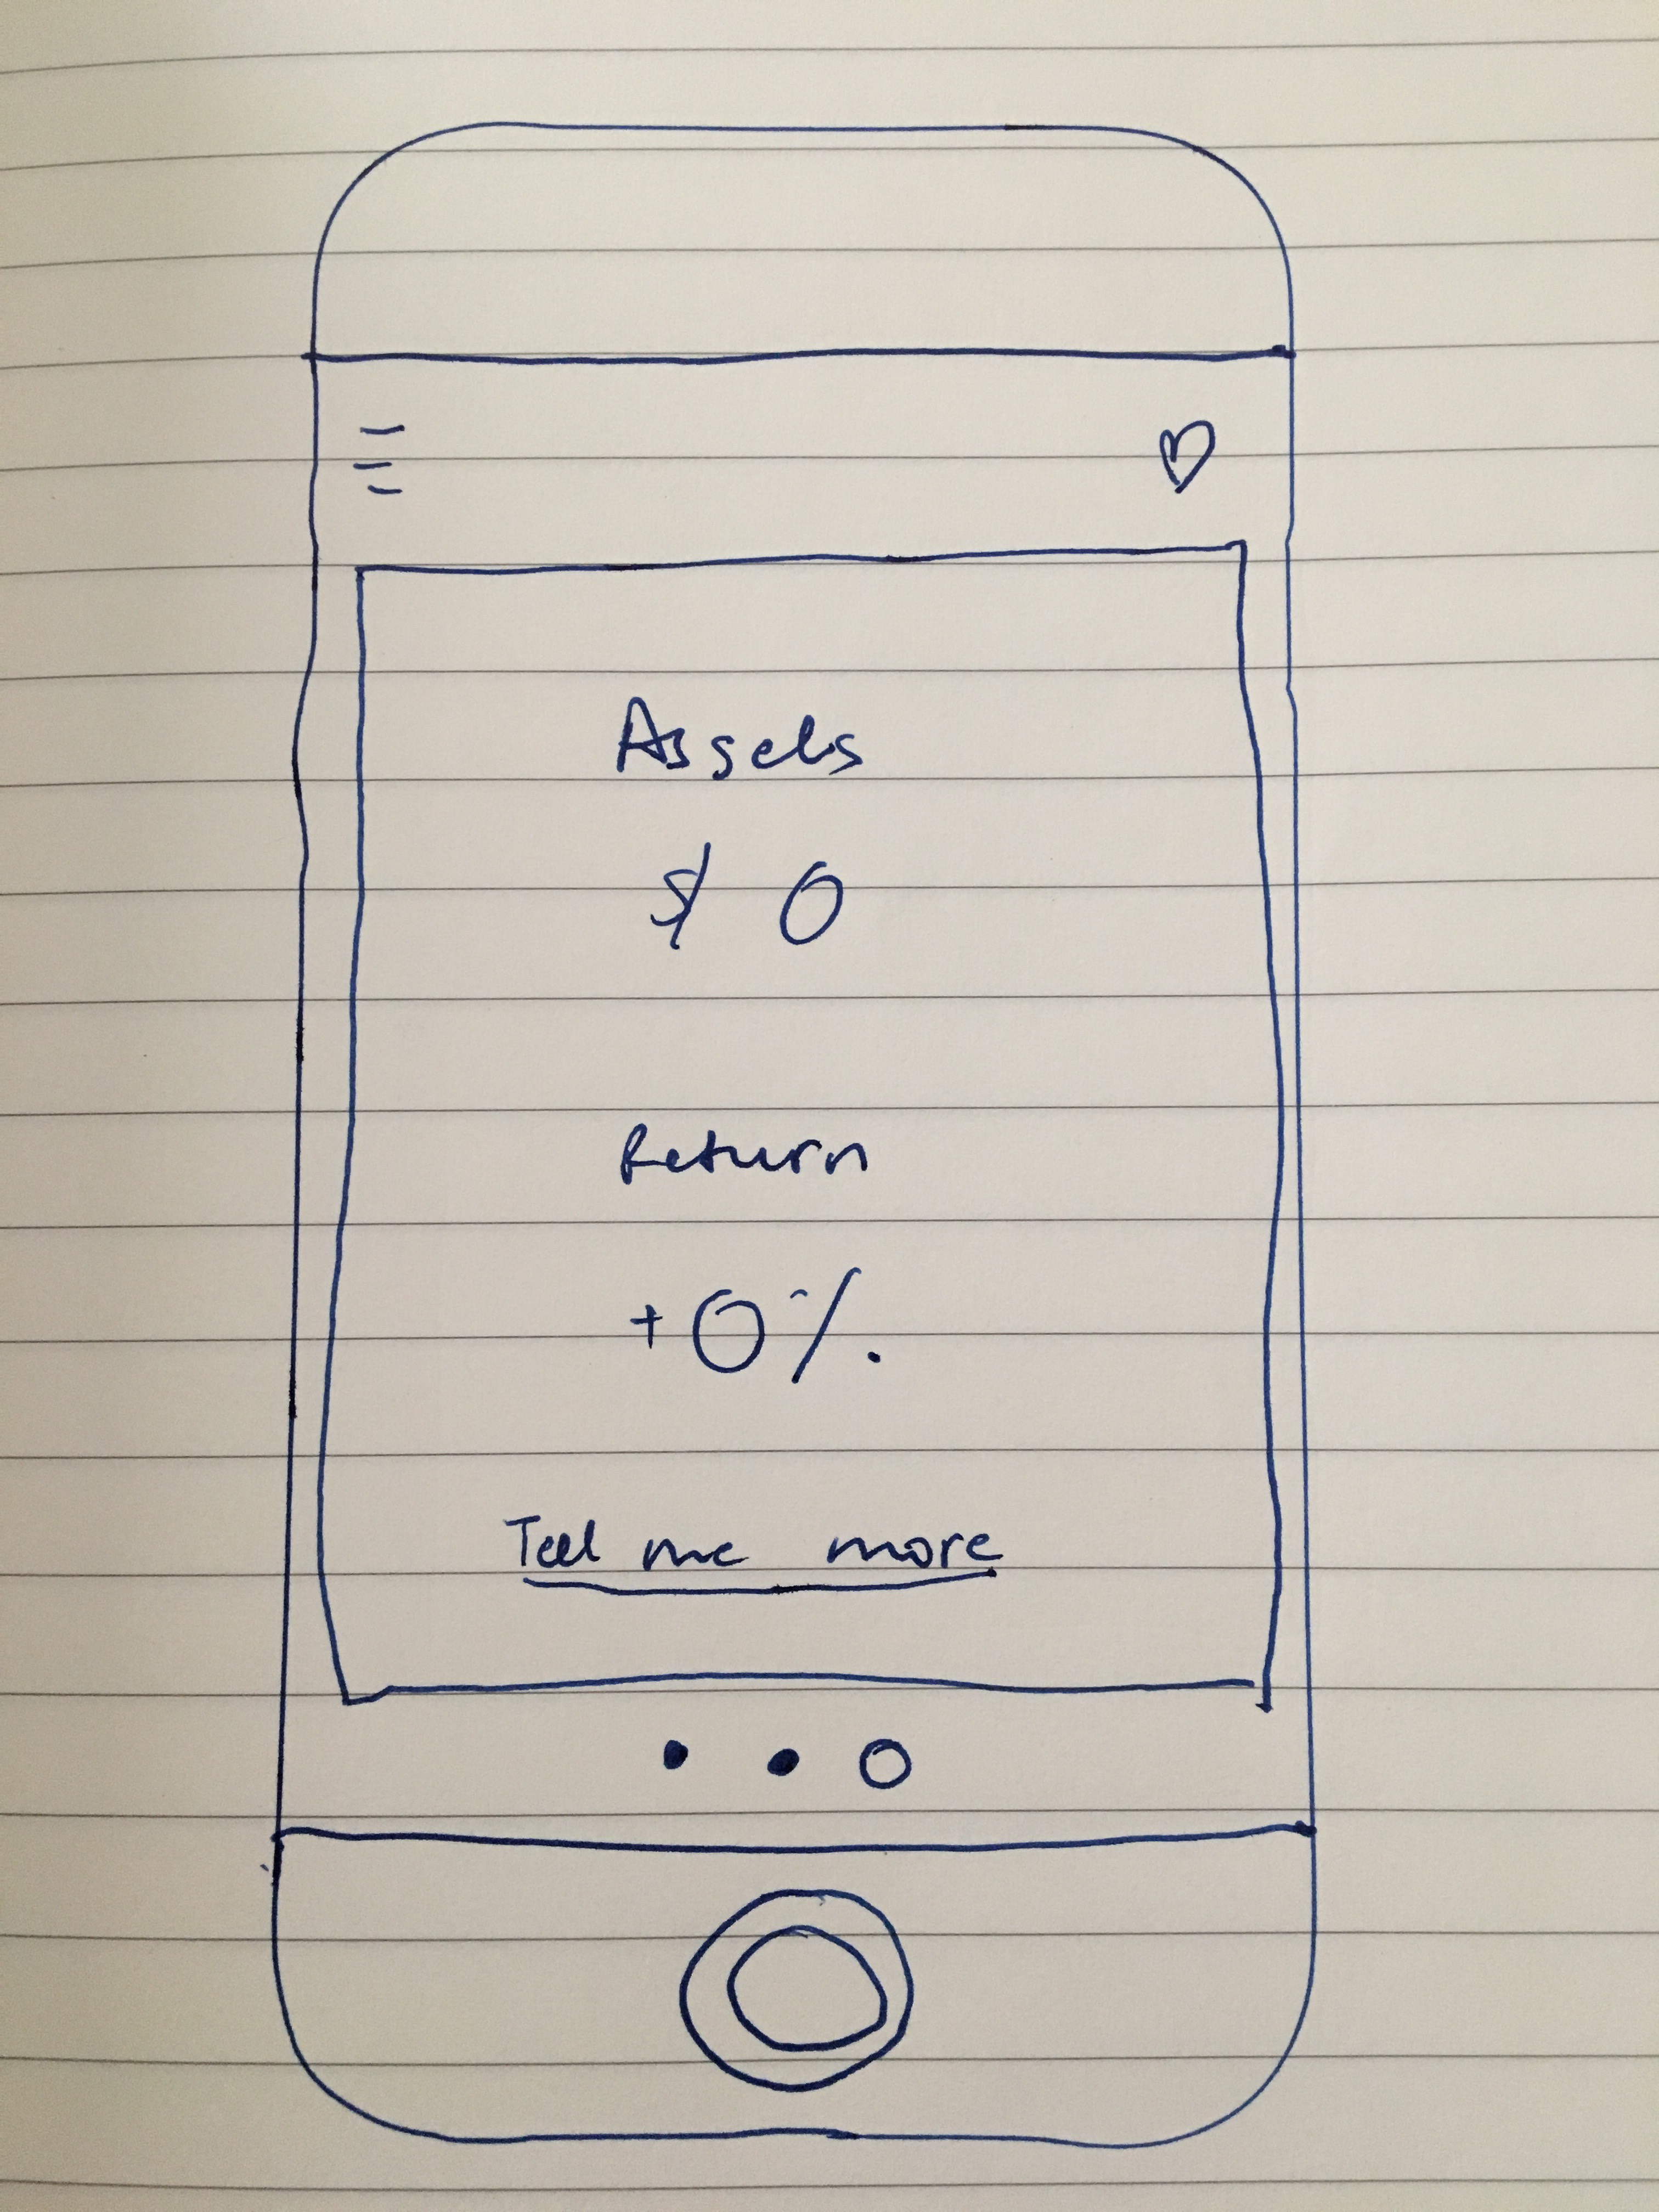 Assets
$ 0
Return
+0%
Tell me more